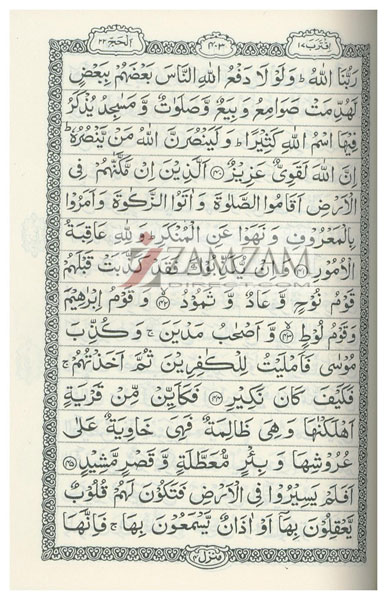 اِقْتَرَبَ ١٧ ٤٠٣ اَلْحَجّ ٢٢
رَبُّنَا اللّٰهُ ؕ وَ لَوْ لَا دَفْعُ اللّٰهِ النَّاسَ بَعْضَهُمْ بِبَعْضٍ
لَّهُدِّمَتْ صَوَامِعُ وَ بِيَعٌ وَّ صَلَوٰتٌ وَّ مَسٰجِدُ يُذْكَرُ
فِيْهَا اسْمُ اللّٰهِ كَثِيْرًا ؕ وَ لَيَنْصُرَنَّ اللّٰهُ مَنْ يَّنْصُرُهٗ ؕ
اِنَّ اللّٰهَ لَقَوِيٌّ عَزِيْزٌ ﴿٤٠﴾ اَلَّذِيْنَ اِنْ مَّكَّنّٰهُمْ فِي
الْاَرْضِ اَقَامُوا الصَّلٰوةَ وَ اٰتَوُا الزَّكٰوةَ وَ اَمَرُوْا
بِالْمَعْرُوْفِ وَ نَهَوْا عَنِ الْمُنْكَرِ ؕ وَ لِلّٰهِ عَاقِبَةُ
الْاُمُوْرِ ﴿٤١﴾ وَ اِنْ يُّكَذِّبُوْكَ فَقَدْ كَذَّبَتْ قَبْلَهُمْ
قَوْمُ نُوْحٍ وَّ عَادٌ وَّ ثَمُوْدُ ﴿٤٢﴾ وَ قَوْمُ اِبْرٰهِيْمَ
وَ قَوْمُ لُوْطٍ ﴿٤٣﴾ وَّ اَصْحٰبُ مَدْيَنَ ۚ وَ كُذِّبَ
مُوْسٰى فَاَمْلَيْتُ لِلْكٰفِرِيْنَ ثُمَّ اَخَذْتُهُمْ ۚ
فَكَيْفَ كَانَ نَكِيْرِ ﴿٤٤﴾ فَكَاَيِّنْ مِّنْ قَرْيَةٍ
اَهْلَكْنٰهَا وَ هِيَ ظَالِمَةٌ فَهِيَ خَاوِيَةٌ عَلٰى
عُرُوْشِهَا وَ بِئْرٍ مُّعَطَّلَةٍ وَّ قَصْرٍ مَّشِيْدٍ ﴿٤٥﴾
اَفَلَمْ يَسِيْرُوْا فِي الْاَرْضِ فَتَكُوْنَ لَهُمْ قُلُوْبٌ
يَّعْقِلُوْنَ بِهَاۤ اَوْ اٰذَانٌ يَّسْمَعُوْنَ بِهَا ۚ فَاِنَّهَا
منزل ٤
ZAMZAM